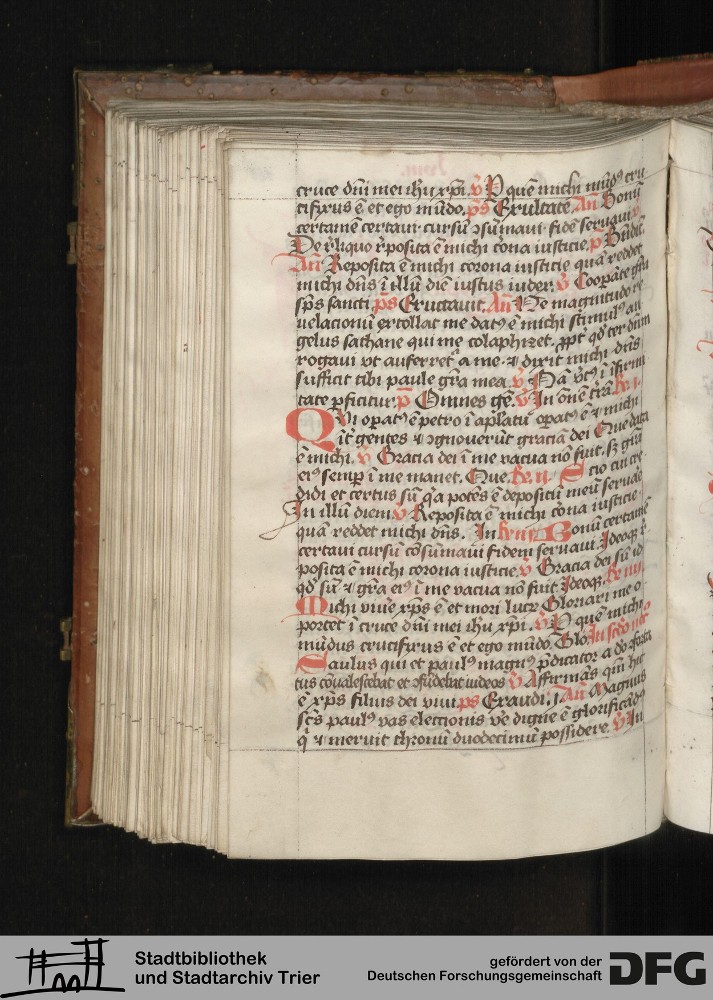 cruce dñi mei ihu xpi. v̄ P quē michi mūdꝰ cru
cifixus ē et ego mūdo. ps Exultate. Añ Bonū
certamē certavi cursū ꝯsūmavi fidē servavi. v̄
De reliquo reposita ē michi corona iusticie. p̄ Bñdic.
Añ Reposita ē michi corona iusticie quā reddet
michi dñs ī illū diē iustus iudex. v̄ Cooꝑāte grā
sps sancti. ps Eructavit. Añ Ne magnitudo re
velacionū extollat me datꝰ ē michi stimulꝰ an
gelus sathane qui me colaphizet. ꝓpt qd ter dūm
rogavi vt auferretᷣ a me. ⁊ dixit michi dñs
sufficit tibi paule grā mea. v̄ Nā vtꝰ ī īfirmi
tate ꝑficitur. p̄ Omnes gē. v̄ In onē trā. Rx. i.
QVi oꝑatꝰ ē petro ī aplatū oꝑatꝰ ē ⁊ michi
īt gentes ⁊ ꝯgnoverūt graciā dei Que data
ē michi. v̄ Gracia dei ī me vacua nō fuit. sꝫ grā
eiꝰ semꝑ ī me manet. Que. Rx. ii. Scio cui cre
didi et certus sū qa potēs ē depositū meū servare
In illū diem. v̄ Reposita ē michi corona iusticie
quā reddet michi dñs. In Rx iii Bonū certamē
certavi cursū cōsūmavi fidem servavi. Ideoqꝫ re
posita ē michi corona iusticie. v̄ Gracia dei sū id
qd sū ⁊ grā eiꝰ ī me vacua nō fuit Ideoqꝫ. Rx iiii.
Michi viuē xps ē et mori lucꝝ Gloriari me o
portet ī cruce dñi mei ihu xpi. v̄ P quē michi
mūdus crucifixus ē et ego mūdo. Glo In scdo noc
Saulus qui et paulꝰ magnꝰ p̄dicator a do ꝯforta
tus cōvalescebat et ꝯfūdebat iudeos v̄ Affirmās qm̄ hic
ē xps filius dei vivi. ps Exaudi. i. Añ Magnus
scs paulꝰ vas electionis ve digne ē glorificādꝰ
q̄ ⁊ meruit thronū duodecimū possidere. v̄ In
Stadtbibliothek
und Stadtarchiv Trier
gefördert von der
Deutschen Forschungsgemeinschaft DFG